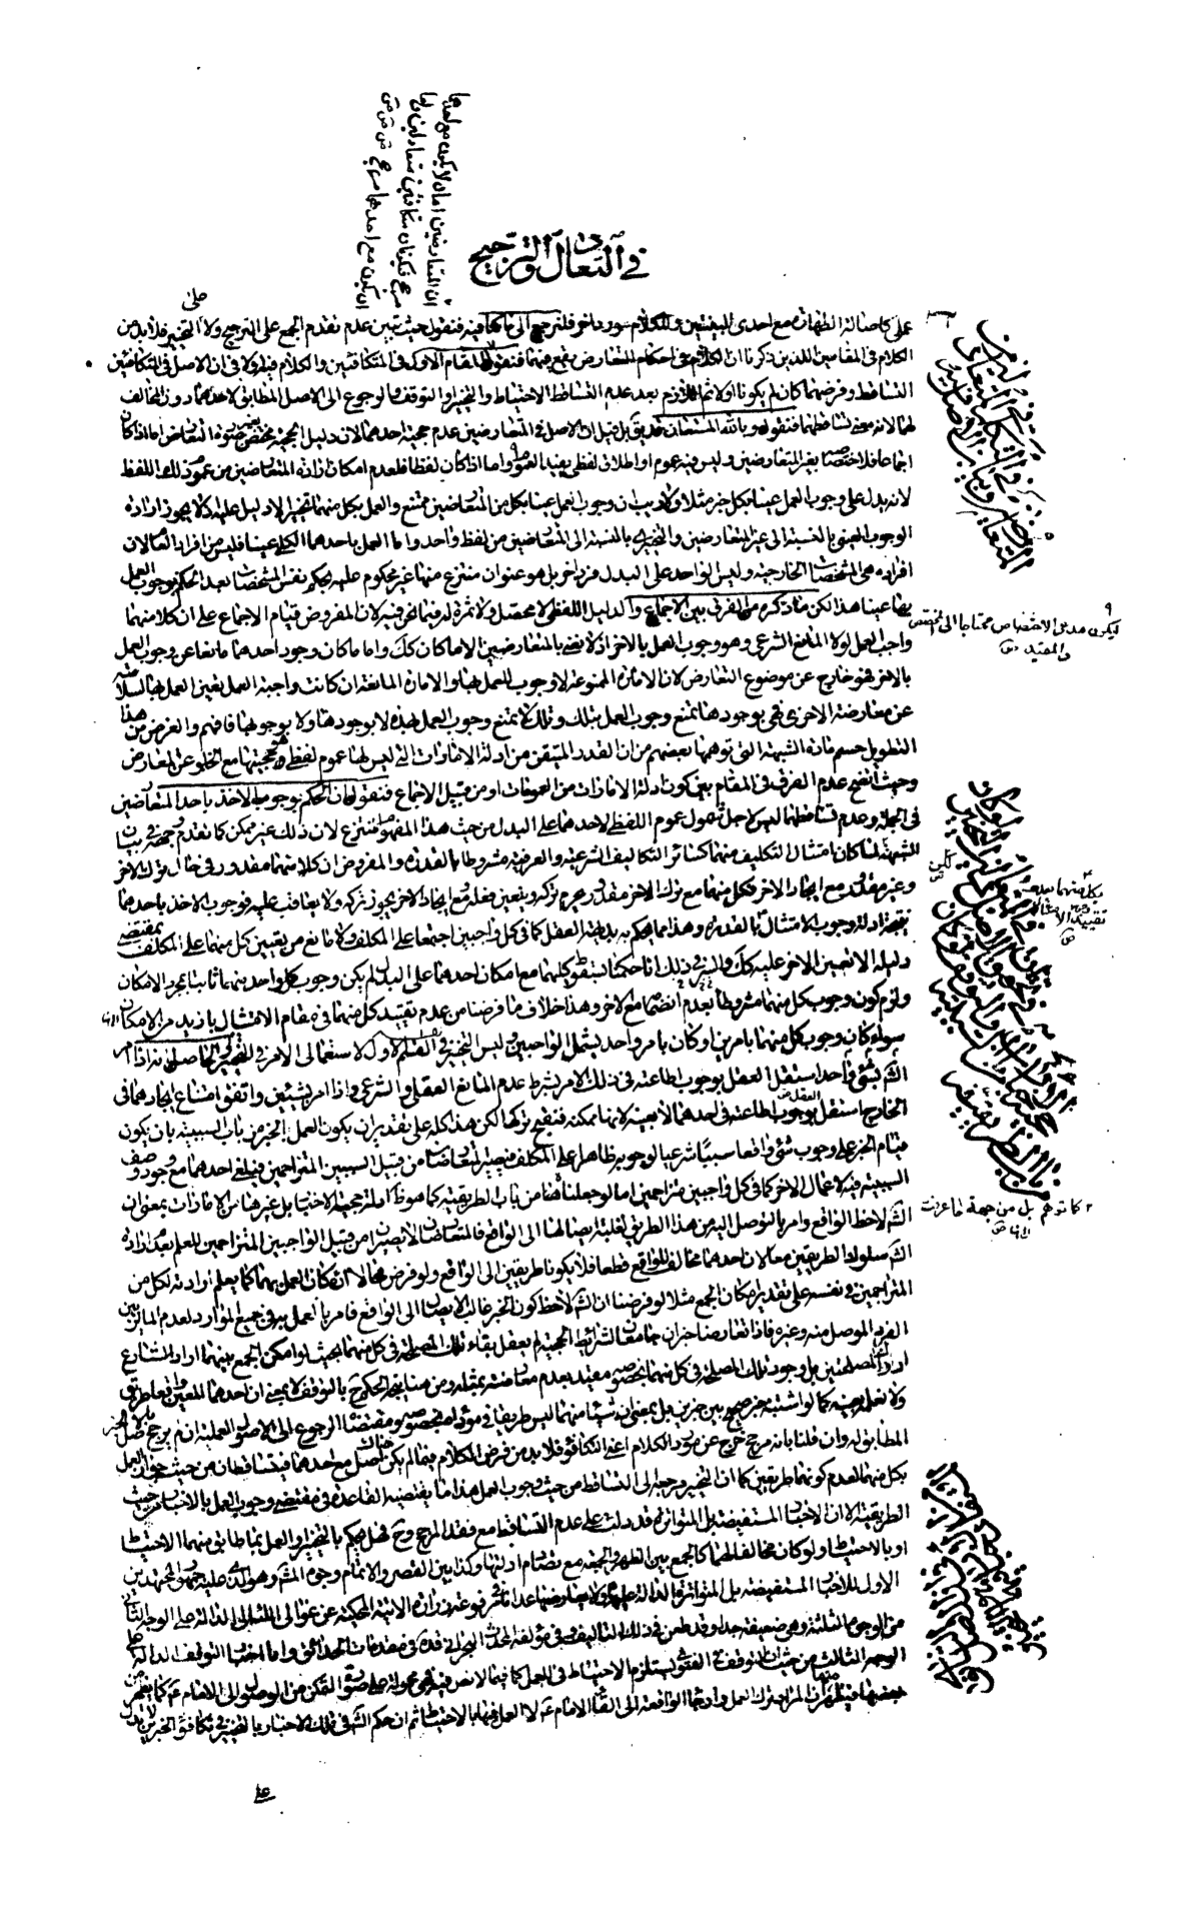 في التعادل والترجيح
على اصالة الطهارة مع احدى البينتين وللكلام مورد اخر فلنرجع الى ما كنا فيه فنقول حيث تبين عدم تقدم الجمع على الترجيح ولا على التخيير فلا بد من
الكلام في المقامين اللذين ذكرنا ان الكلام في احكام التعارض يقع فيهما فنقول المقام الاول في المتكافئين والكلام فيه اولا في ان الاصل في المتكافئين
التساقط وفرضهما كان لم يكونا اولا ثم اللازم بعد عدم التساقط الاحتياط او التخيير او التوقف والرجوع الى الاصل المطابق لاحدهما دون المخالف
لهما لانه معنى تساقطهما فنقول وبالله المستعان قد يق بل قيل ان الاصل في المتعارضين عدم حجية احدهما لان دليل الحجية مختص بغير صورة التعارض اما اذا كان
اجماعا فلاختصاصه بغير المتعارضين وليس فيه عموم او اطلاق لفظي يفيد العموم واما اذا كان لفظا فلعدم امكان ارادة المتعارضين من عموم ذلك اللفظ
لانه يدل على وجوب العمل عينا بكل خبر مثلا ولا ريب ان وجوب العمل عينا بكل من المتعارضين ممتنع والعمل بكل منهما تخييرا لا دليل عليه اذ لا يجوز ارادة
الوجوب العيني بالنسبة الى غير المتعارضين والتخييري بالنسبة الى المتعارضين من لفظ واحد واما العمل باحدهما الكلي عينا فليس من افراد العام لان
افراده هي المشخصات الخارجية وليس الواحد على البدل فردا اخر بل هو عنوان منتزع منها غير محكوم عليه بحكم نفس المشخصات بعد الحكم بوجوب العمل
بها عينا هذا لكن ما ذكره من الفرق بين الاجماع والدليل اللفظي لا محصل ولا ثمرة له فيما نحن فيه لان المفروض قيام الاجماع على ان كلا منهما
واجب العمل لولا المانع الشرعي وهو وجوب العمل بالاخر اذ لا نعني بالمتعارضين الا ما كان كك واما ما كان وجود احدهما مانعا عن وجوب العمل
بالاخر فهو خارج عن موضوع التعارض لان الامارة الممنوعة لا وجوب للعمل بها والامارة المانعة ان كانت واجبة العمل تعين العمل بها لسلامته
عن معارضة الاخرى فهي بوجودها تمنع وجوب العمل بتلك وتلك لا تمنع وجوب العمل بهذه لا بوجودها ولا بوجوبها فافهم والغرض من هذا
التطويل حسم مادة الشبهة التي توهمها بعضهم من ان القدر المتيقن من ادلة الامارات التي ليس لها عموم لفظي هو حجيتها مع الخلو عن المعارض
وحيث اتضح عدم الفرق في المقام بين كون ادلة الامارات من العمومات او من قبيل الاجماع فنقول ان الحكم بوجوب الاخذ باحد المتعارضين
في الجملة وعدم تساقطهما ليس لاجل شمول عموم اللفظ لاحدهما على البدل من حيث هذا المفهوم المنتزع لان ذلك غير ممكن كما تقدم وجهه في بيان
الشبهة لما كان امتثال التكليف منهما كسائر التكاليف الشرعية والعرفية مشروطا بالقدرة والمفروض ان كلا منهما مقدور في حال ترك الاخر
وغير مقدور مع ايجاد الاخر فكل منهما مع ترك الاخر مقدور يحرم تركه ويتعين فعله ومع ايجاد الاخر يجوز تركه ولا يعاقب عليه فوجوب الاخذ باحدهما
نتيجة ادلة وجوب الامتثال بالقدرة وهذا مما يحكم به بديهة العقل كما في كل واجبين اجتمعا على المكلف ولا مانع من تعيين كل منهما على المكلف بمقتضى
دليله الا تعيين الاخر عليه كك والسر في ذلك انا لو حكمنا بسقوط كليهما مع امكان احدهما على البدل لم يكن وجوب كل واحد منهما ثابتا بمجرد الامكان
ولزم كون وجوب كل منهما مشروطا بعدم انضمامه مع الاخر وهذا خلاف ما فرضنا من عدم تقييد كل منهما في مقام الامتثال بازيد من الامكان
سواء كان وجوب كل منهما بامرين او كان بامر واحد يشمل الواجبين وليس التخيير في القسم الاول لاستعمال الامر في التخيير والحاصل انه اذا امر
الش بشئ واحد استقل العقل بوجوب اطاعته في ذلك الامر بشرط عدم المانع العقلي والشرعي واذا امر بشيئين واتفق امتناع ايجادهما في
الخارج استقل العقل بوجوب اطاعته في احدهما لا بعينه لانها ممكنة فيقبح تركها لكن هذا كله على تقدير ان يكون العمل بالخبر من باب السببية بان يكون
قيام الخبر على وجوب شئ واقعا سببا شرعيا لوجوبه ظاهرا على المكلف فيصير المتعارضان من قبيل السببين المتزاحمين فيلغى احدهما مع وجود وصف
السببية فيه لاعمال الاخر كما في كل واجبين متزاحمين اما لو جعلناه من باب الطريقية كما هو ظ ادلة حجية الاخبار بل غيرها من الامارات بمعنى ان
الش لاحظ الواقع وامر بالتوصل اليه من هذا الطريق لغلبة ايصالها الى الواقع فالمتعارضان لا يصيران من قبيل الواجبين المتزاحمين للعلم بعدم ارادة
الش سلوك الطريقين معا لان احدهما مخالف للواقع قطعا فلا يكونا طريقين الى الواقع ولو فرض محالا امكان العمل بهما كما يعلم ارادته لكل من
المتزاحمين في نفسه على تقدير امكان الجمع مثلا لو فرضنا ان الش لاحظ كون الخبر غالب الايصال الى الواقع فامر بالعمل به في جميع الموارد لعدم المايز بين
الفرد الموصل منه وغيره فاذا تعارض خبران جامعان لشرائط الحجية لم يعقل بقاء تلك المصلحة في كل منهما بحيث لو امكن الجمع بينهما اراد الشارع
ادراك المصلحتين بل وجود تلك المصلحة في كل منهما بخصوصه مقيد بعدم معارضته بمثله ومن هنا يتجه الحكم ح بالتوقف لا بمعنى ان احدهما المعين واقعا طريق
ولا نعلمه بعينه كما لو اشتبه خبر صحيح بين خبرين بل بمعنى ان شيئا منهما ليس طريقا في مؤداه بخصوصه ومقتضاه الرجوع الى الاصول العملية ان لم يرجح بالاصل الخبر
المطابق له وان قلنا بانه مرجح خرج عن مورد الكلام اعني التكافؤ فلا بد من فرض الكلام فيما لم يكن هناك اصل مع احدهما فيتساقطان من حيث جواز العمل
بكل منهما لعدم كونهما طريقين كما ان التخيير مرجعه الى التساقط من حيث وجوب العمل هذا ما يقتضيه القاعدة في مقتضى وجوب العمل بالاخبار من حيث
الطريقية الا ان الاخبار المستفيضة بل المتواترة قد دلت على عدم التساقط مع فقد المرجح وح فهل يحكم بالتخيير او العمل بما طابق منهما الاحتياط
او بالاحتياط ولو كان مخالفا لهما كالجمع بين الظهر والجمعة مع تصادم ادلتهما وكذا بين القصر والاتمام وجوه المشهور وهو الذي عليه جمهور المجتهدين
الاول للاخبار المستفيضة بل المتواترة الدالة عليه ولا يعارضها عدا ما في مرفوعة زرارة الاتية المحكية عن عوالي اللئالي الدالة على الوجه الثاني
من الوجوه الثلثة وهي ضعيفة جدا وقد طعن في ذلك التاليف وفي مؤلفه المحدث البحراني قده في مقدمات الحدائق واما اخبار التوقف الدالة على
الوجه الثالث من حيث ان التوقف في الفتوى يستلزم الاحتياط في العمل كما فيما لا نص فيه فهي محمولة على صورة التمكن من الوصول الى الامام ع كما يظهر من
بعضها فيظهر منها ان المراد ترك العمل وارجاء الواقعة الى لقاء الامام ع لا العمل فيها بالاحتياط ثم ان حكم الش في تلك الاخبار بالتخيير في تكافؤ الخبرين لا يدل
ان المتعارضين اما ان لا يكون مع احدهما
مرجح فيكونان متكافئين متعادلين واما
ان يكون مع احدهما مرجح
ليكون مدعى الاختصاص محتاجا الى المخصص
والمقيد
كما توهم بل من جهة ما عرفت